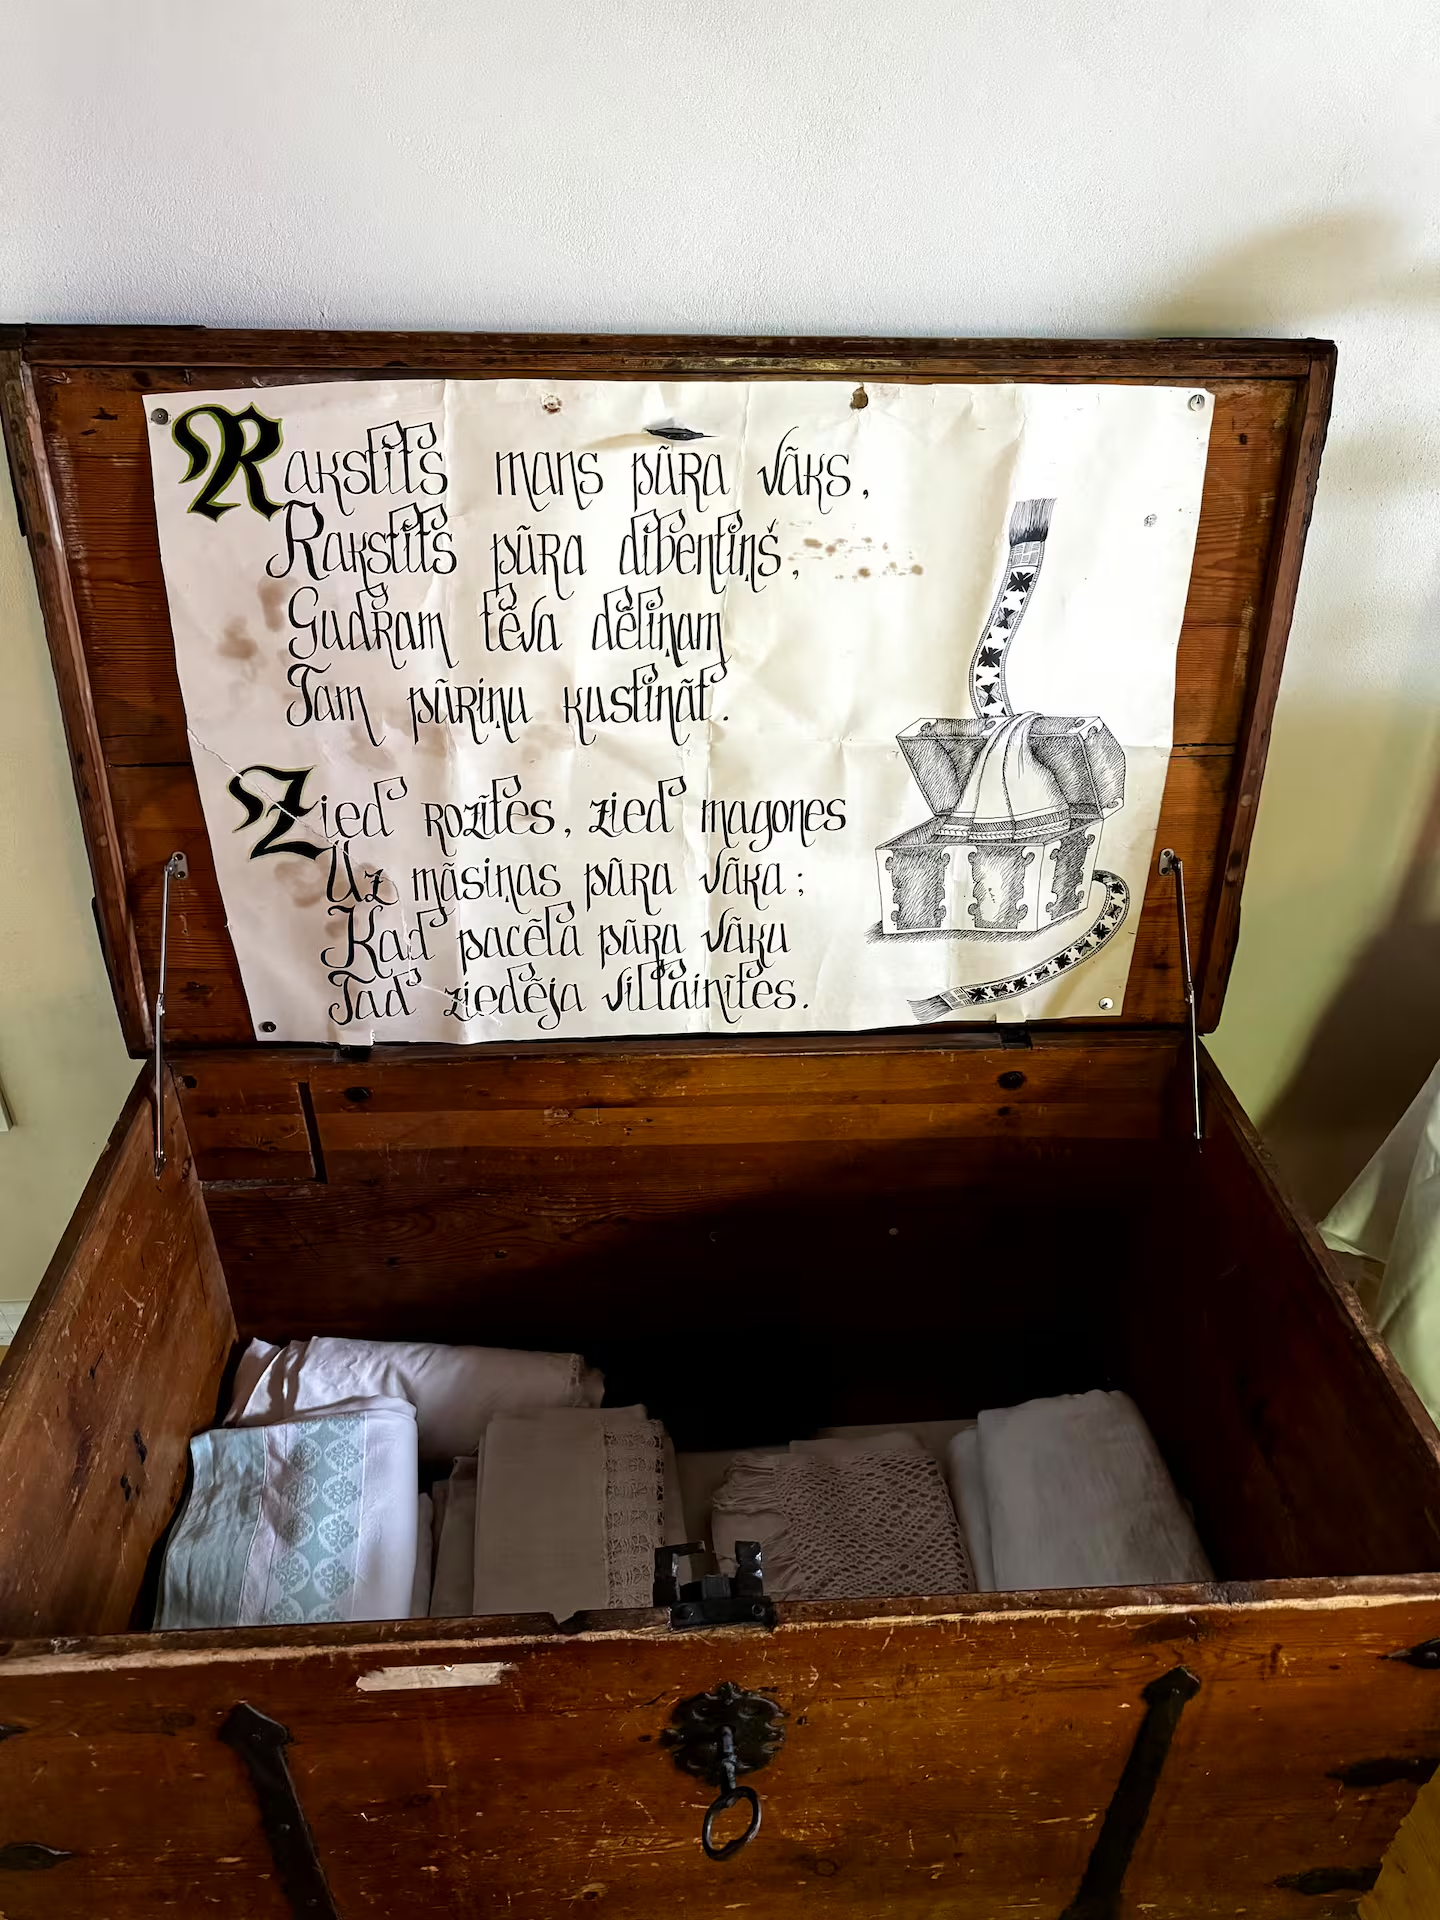 Rakstīts mans pūra vāks,
Rakstīts pūra dibentiņš,
Gudram tēva dēliņam
Tam pūriņu kustināt.
Zied rozītes, zied magones
Uz māsiņas pūra vāka;
Kad pacēla pūra vāku
Tad ziedēja villainītes.